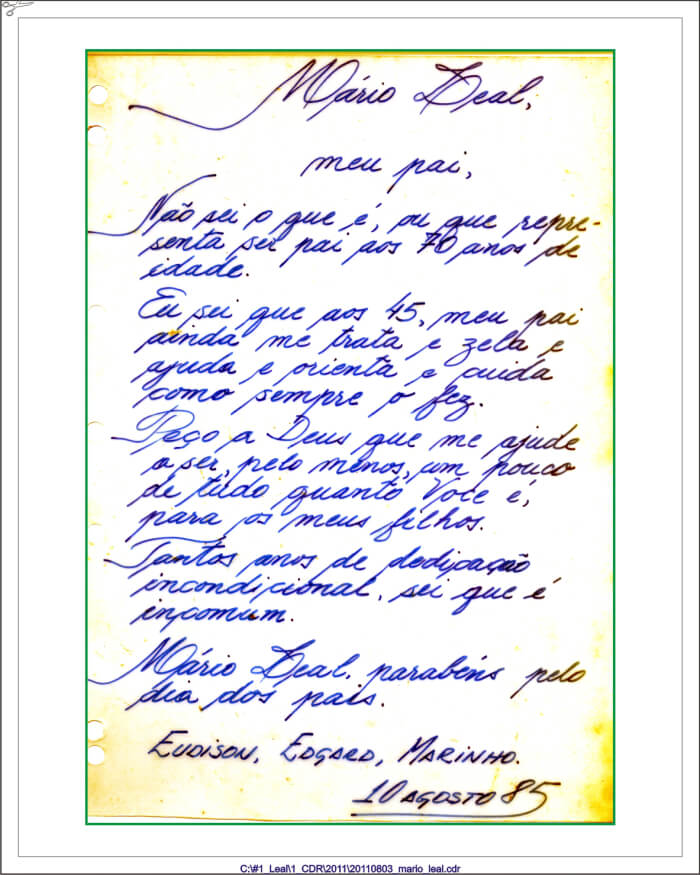 Mário Leal,
meu pai,
Não sei o que é, ou que repre-
senta, ser pai aos 70 anos de
idade.
Eu sei que aos 45, meu pai
ainda me trata e zela e
ajuda e orienta e cuida
como sempre o fez.
Peço a Deus que me ajude
a ser, pelo menos, um pouco
de tudo quanto Voce é,
para os meus filhos.
Tantos anos de dedicação
incondicional, sei que é
incomum.
Mário Leal, parabéns pelo
dia dos pais.
EUDISON, EDGARD, MARINHO.
10 AGOSTO 85
C:\#1_Leal\1_CDR\2011\20110803_mario_leal.cdr